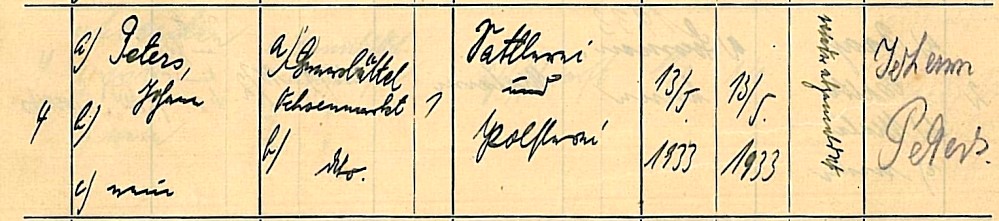 4
a) Peters,
Johann
b)
c) nein
a) Brunsbüttel
Ochsenmarkt
b) dto.
1
Sattlerei
und
Polsterei
13/5.
1933
13/5.
1933
Johann
Peters.